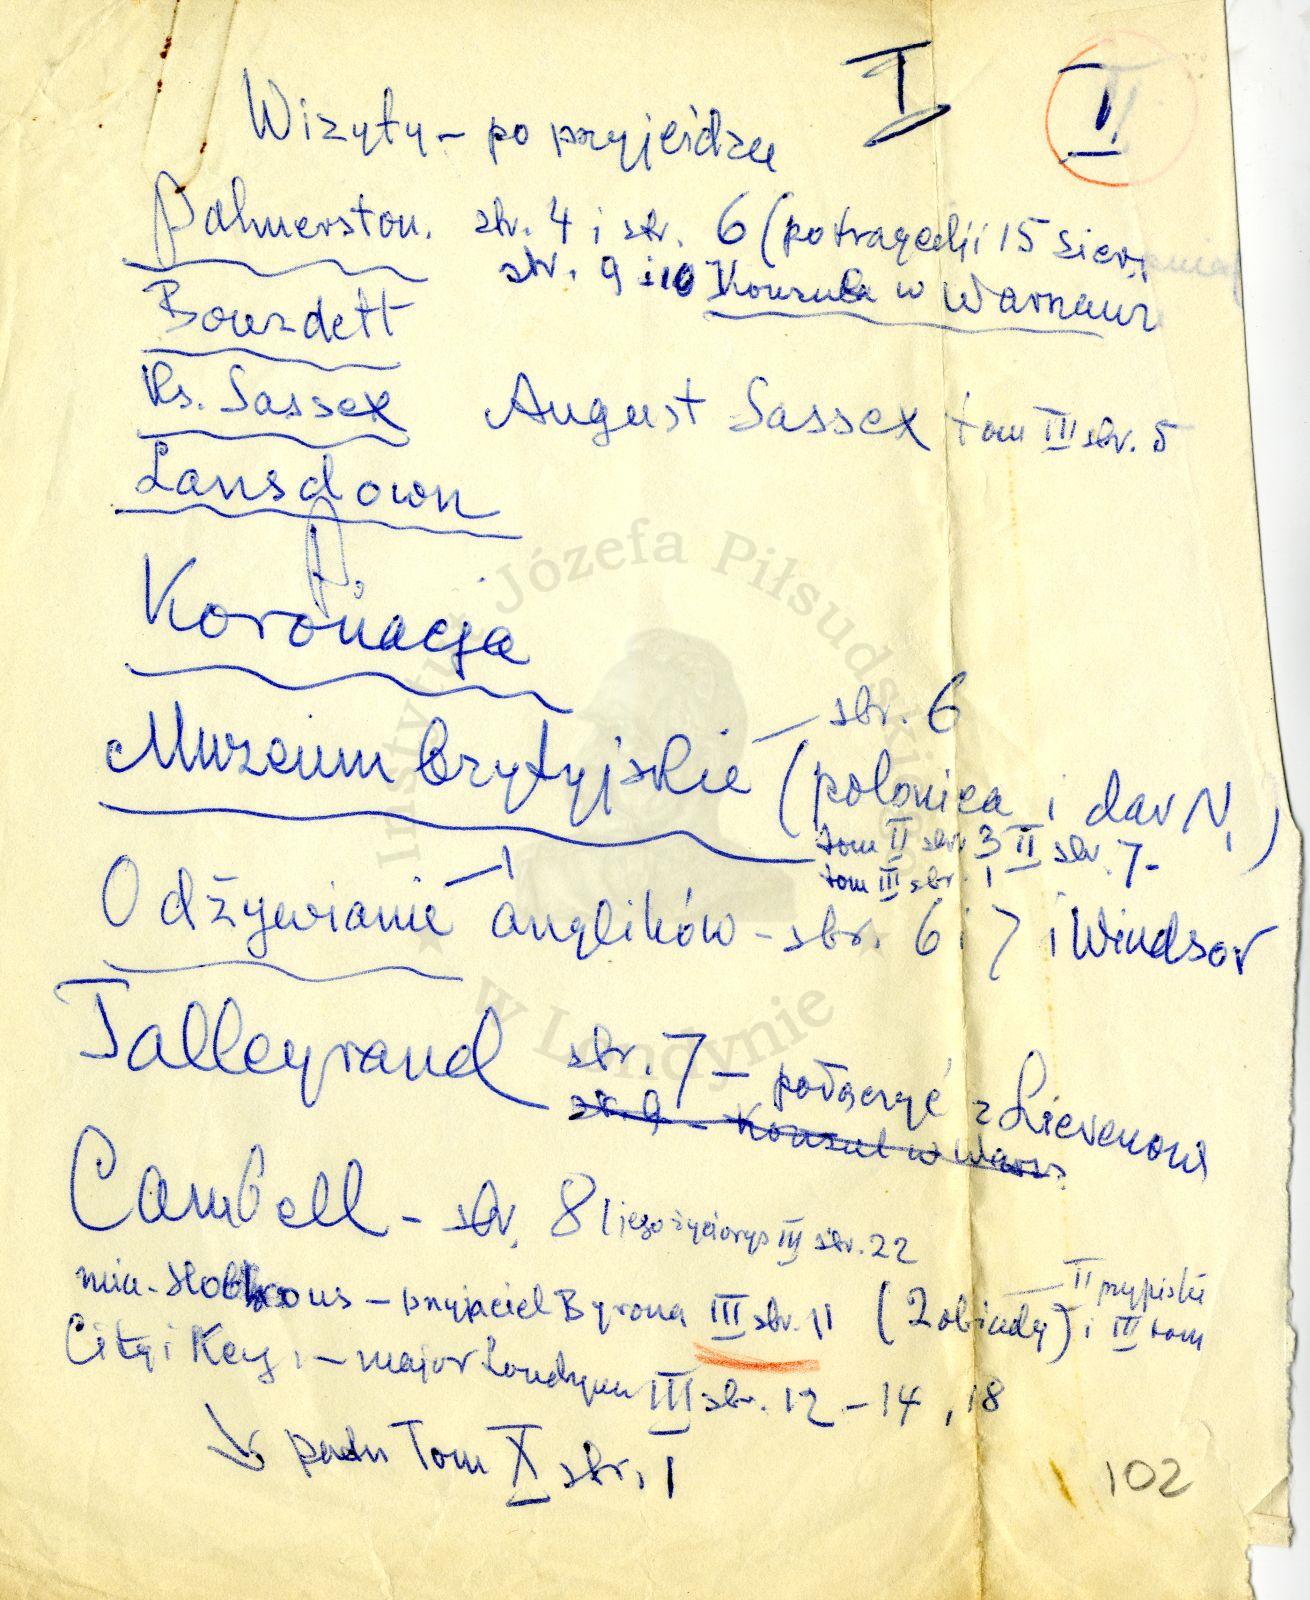 I II
Wizyty - po przyjeździe
Palmerston. str. 4 i str. 6 (po tragedji 15 sierpnia)
str. 9 i 10 Konsula w Warszawie
Bourdett
Ks. Sassex August Sassex tom III str. 5
Lansdown
Koronacja
Muzeum brytyjskie - str. 6
(polonica i dar N.)
tom II str. 3 II str. 7-
tom III str. 1
Odżywianie anglików - str. 6 i 7 i Windsor
Talleyrand str. 7 - połączyć z Lievenową
str. 9 - Konsul w Warsz.
Cambell - str. 8 (jego życiorys III str. 22
- przyjaciel Byrona III str. 11 ( ) i III tom
II przypiski
City i Key, - major Londynu III str. 12 - 14, 18
Tom X str. I
102
Instytut Józefa Piłsudskiego
w Londynie